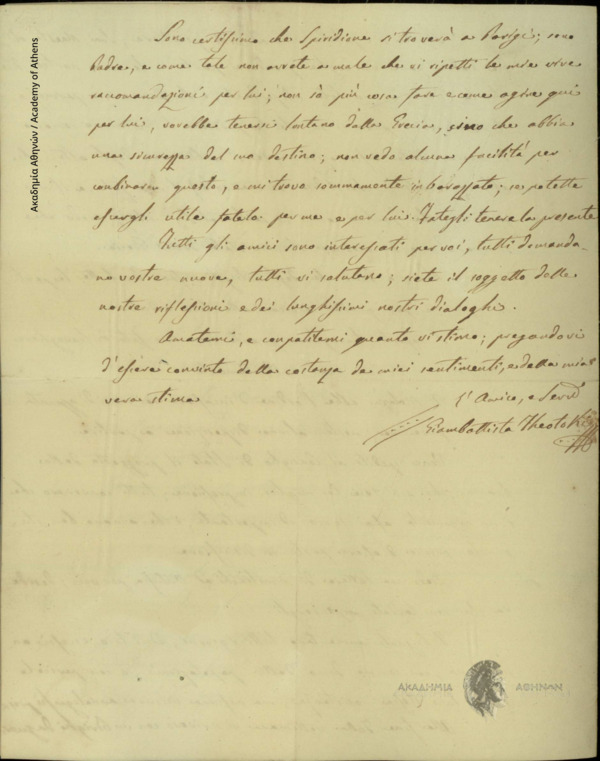 Sono certissimo che Spiridione si troverà a Parigi; sono
Padre, e come tale non avrete a male che vi ripetti le mie vive
raccomandazioni per lui; non sò più cosa fare e come agire quì
per lui, vorebbe tenersi lontano dalla Grecia, sino che abbia
una sicurezza del suo destino; non vedo alcuna facilità per
combinare questo, e mi trovo sommamente imbarazzato; se potette
essergli utile fatelo per me e per lui. Fategli tenere la presente
Tutti gli amici sono interessati per voi, tutti domanda-
no vostre nuove, tutti vi salutano; siete il soggetto delle
nostre riflessioni e dei lunghissimi nostri dialoghi.
Amatemi, e compatitemi quanto vi stimo; pregandovi
d'essere convinto della costanza de miei sentimenti, e della mia
vera stima
L'Amico, e Servr
Giambattista Theotoki
Ακαδημία Αθηνών / Academy of Athens
ΑΚΑΔΗΜΙΑ ΑΘΗΝΩΝ